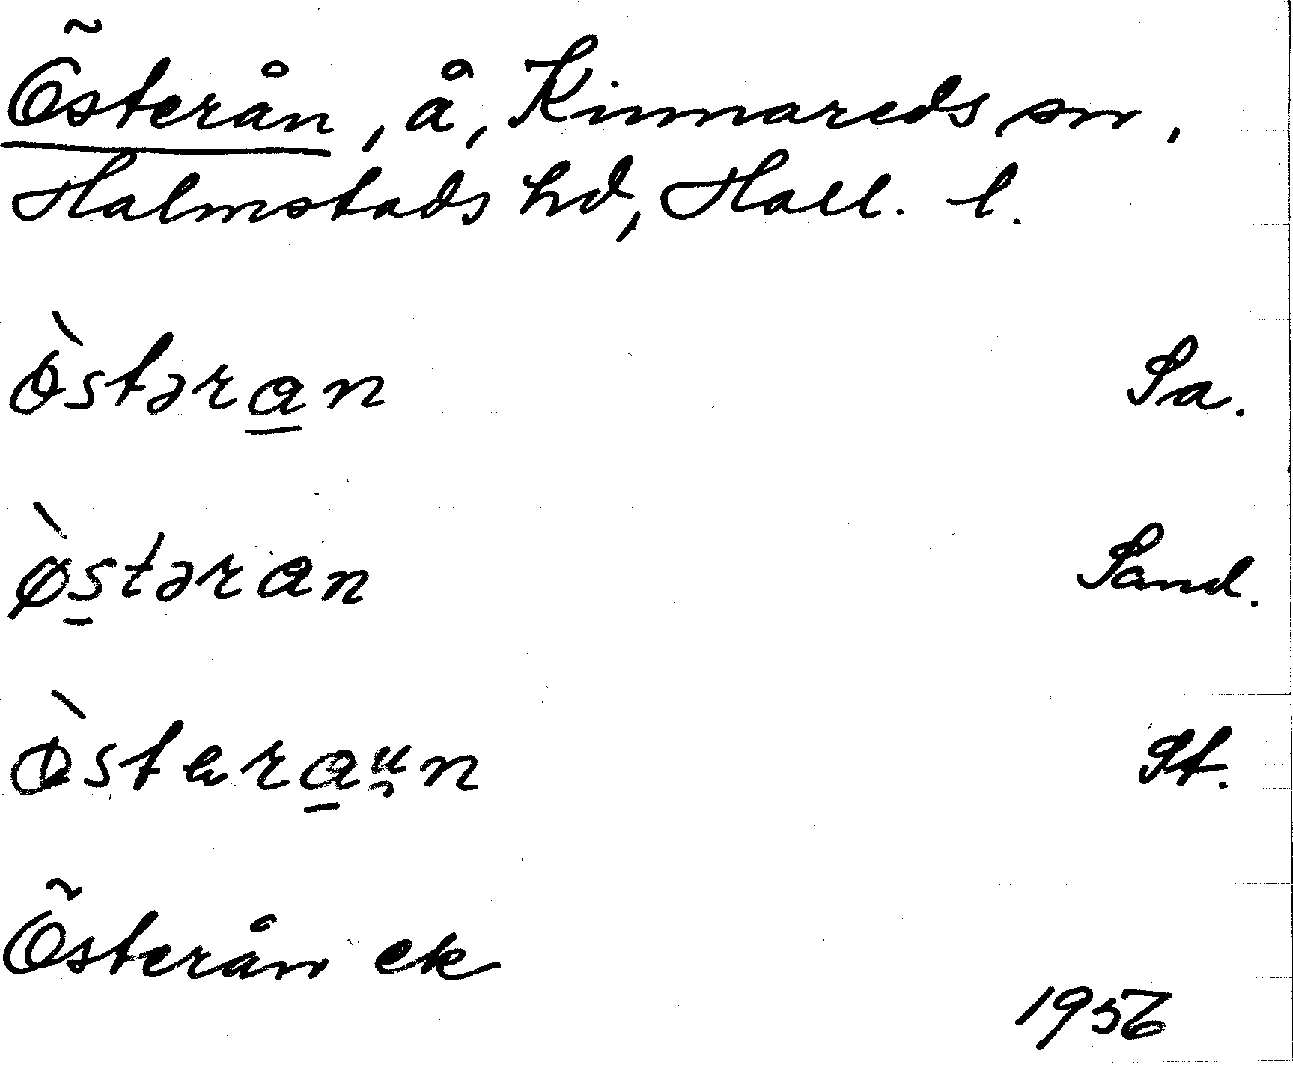 Österån, å, Kinnareds sn,
Halmstads hd, Hall. l.
ø̀stəra̲n Sa.
ø̀s̲təran Sand.
ø̀stera̲u̯n St.
Österån ek
1956